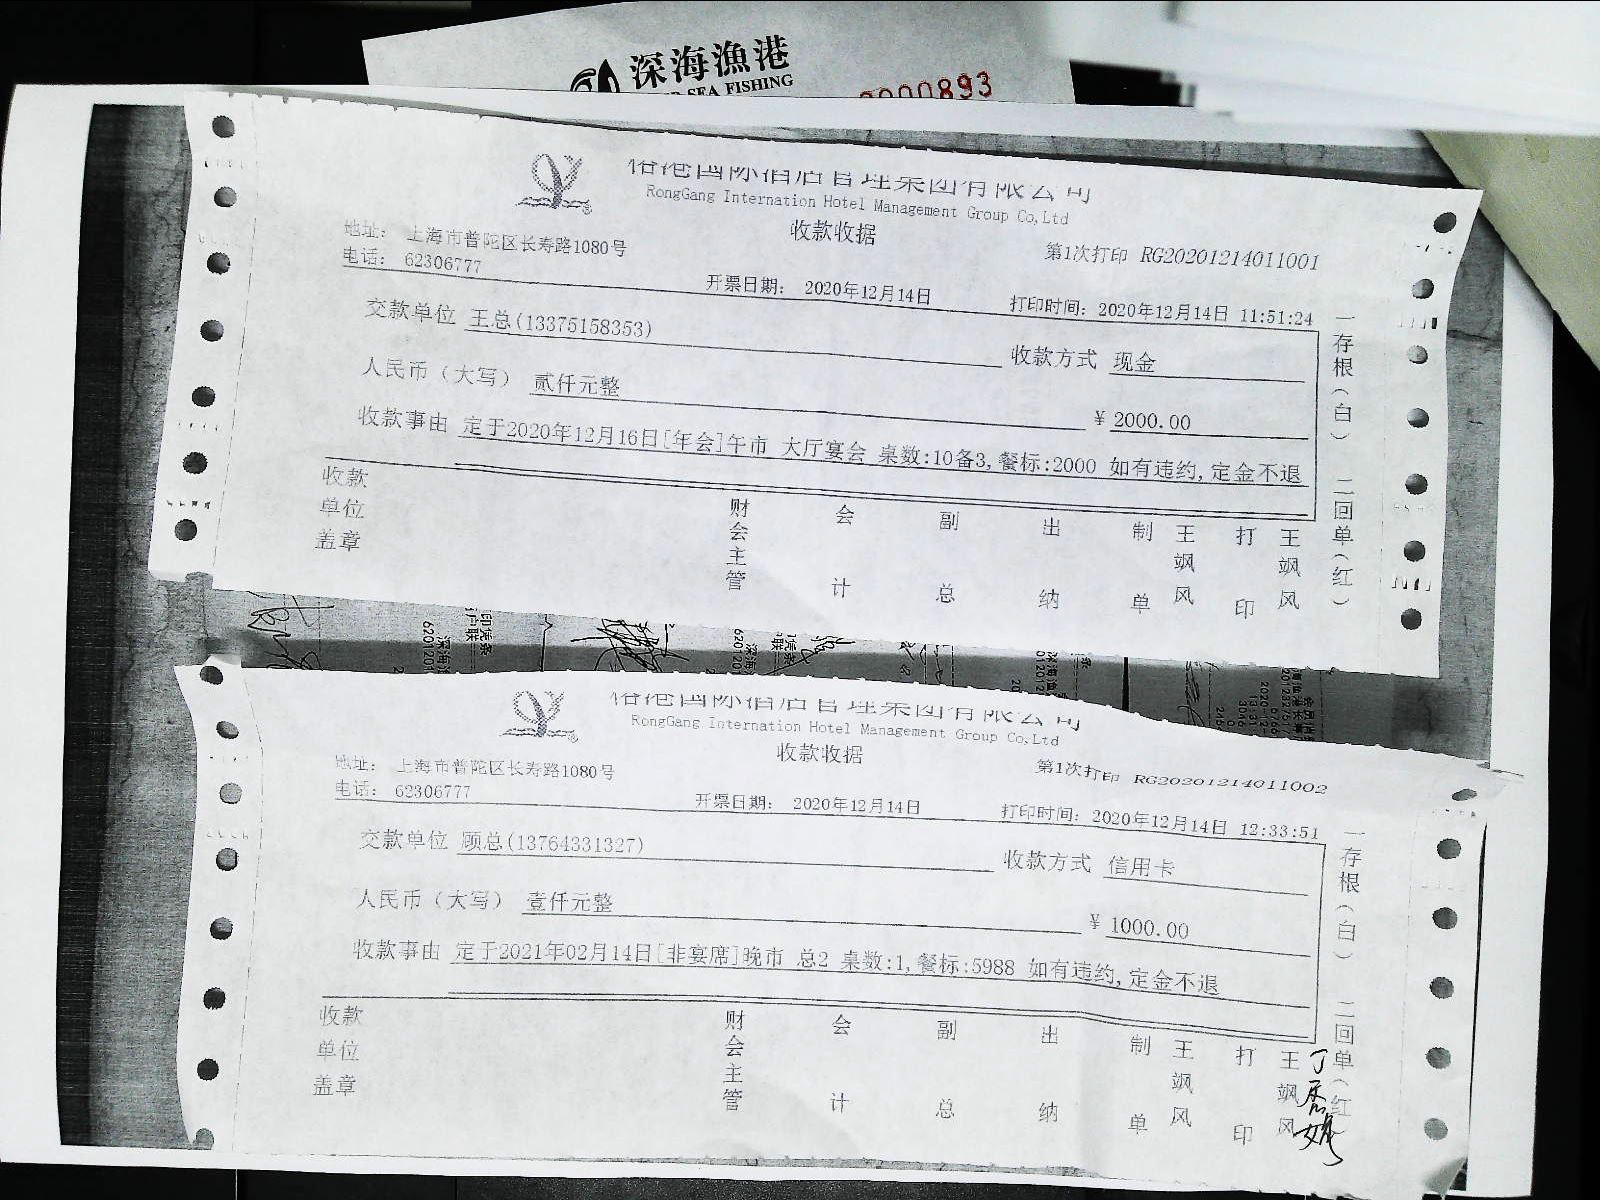 深海漁港
SEA FISHING
000893
国际酒店管理集团有限公司
RongGang Internation Hotel Management Group Co,Ltd
收款收据
地址： 上海市普陀区长寿路1080号
第1次打印 RG20201214011001
电话： 62306777
开票日期： 2020年12月14日
打印时间：2020年12月14日 11:51:24
交款单位 王总(13375158353)
收款方式 现金
人民币（大写） 贰仟元整
¥ 2000.00
收款事由 定于2020年12月16日[年会]午市 大厅宴会 桌数:10备3,餐标:2000 如有违约,定金不退
收款单位盖章
财会主管
会计
副总
出纳
制单
王飒风
打印
王飒风
一存根（白） 二回单（红）
国际酒店管理集团有限公司
RongGang Internation Hotel Management Group Co,Ltd
收款收据
地址： 上海市普陀区长寿路1080号
第1次打印 RG20201214011002
电话： 62306777
开票日期： 2020年12月14日
打印时间：2020年12月14日 12:33:51
交款单位 顾总(13764331327)
收款方式 信用卡
人民币（大写） 壹仟元整
¥ 1000.00
收款事由 定于2021年02月14日[非宴席]晚市 总2 桌数:1,餐标:5988 如有违约,定金不退
收款单位盖章
财会主管
会计
副总
出纳
制单
王飒风
打印
王飒风
一存根（白） 二回单（红）